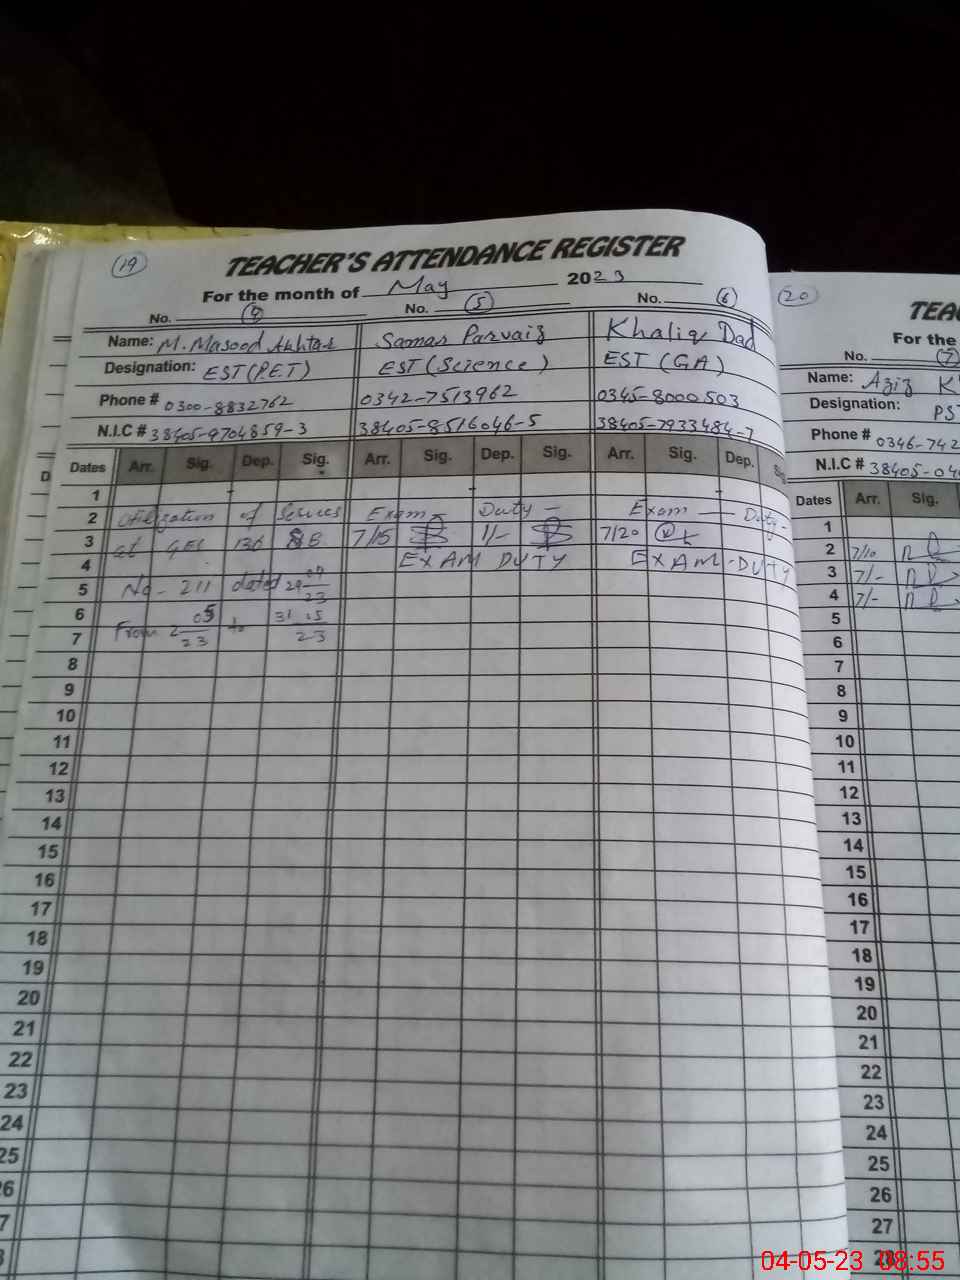 19
TEACHER'S ATTENDANCE REGISTER
For the month of May 2023
No. 4 No. 5 No. 6
Name: M. Masood Akhtar Samar Parvaiz Khaliq Dad
Designation: EST (P.E.T) EST (Science) EST (GA)
Phone # 0300-8832762 0342-7513962 0345-8000503
N.I.C # 38405-9704859-3 38405-8516046-5 38405-7933484-7
Dates Arr. Sig. Dep. Sig. Arr. Sig. Dep. Sig. Arr. Sig. Dep. Sig.
1
2 Utilization of Services Exam Duty - Exam - Duty -
3 at 7/15 1/- 7/20
4 EXAM DUTY EXAM - DUTY
5 No - 211 dated
6
7 From to
8
9
10
11
12
13
14
15
16
17
18
19
20
21
22
23
24
25
20
TEA
For the
No. 7
Name: Aziz K
Designation: PST
Phone # 0346-742
N.I.C # 38405-04
Dates Arr. Sig.
1
2 7/10
3 7/-
4 7/-
5
6
7
8
9
10
11
12
13
14
15
16
17
18
19
20
21
22
23
24
25
26
27
28
04-05-23 08:55